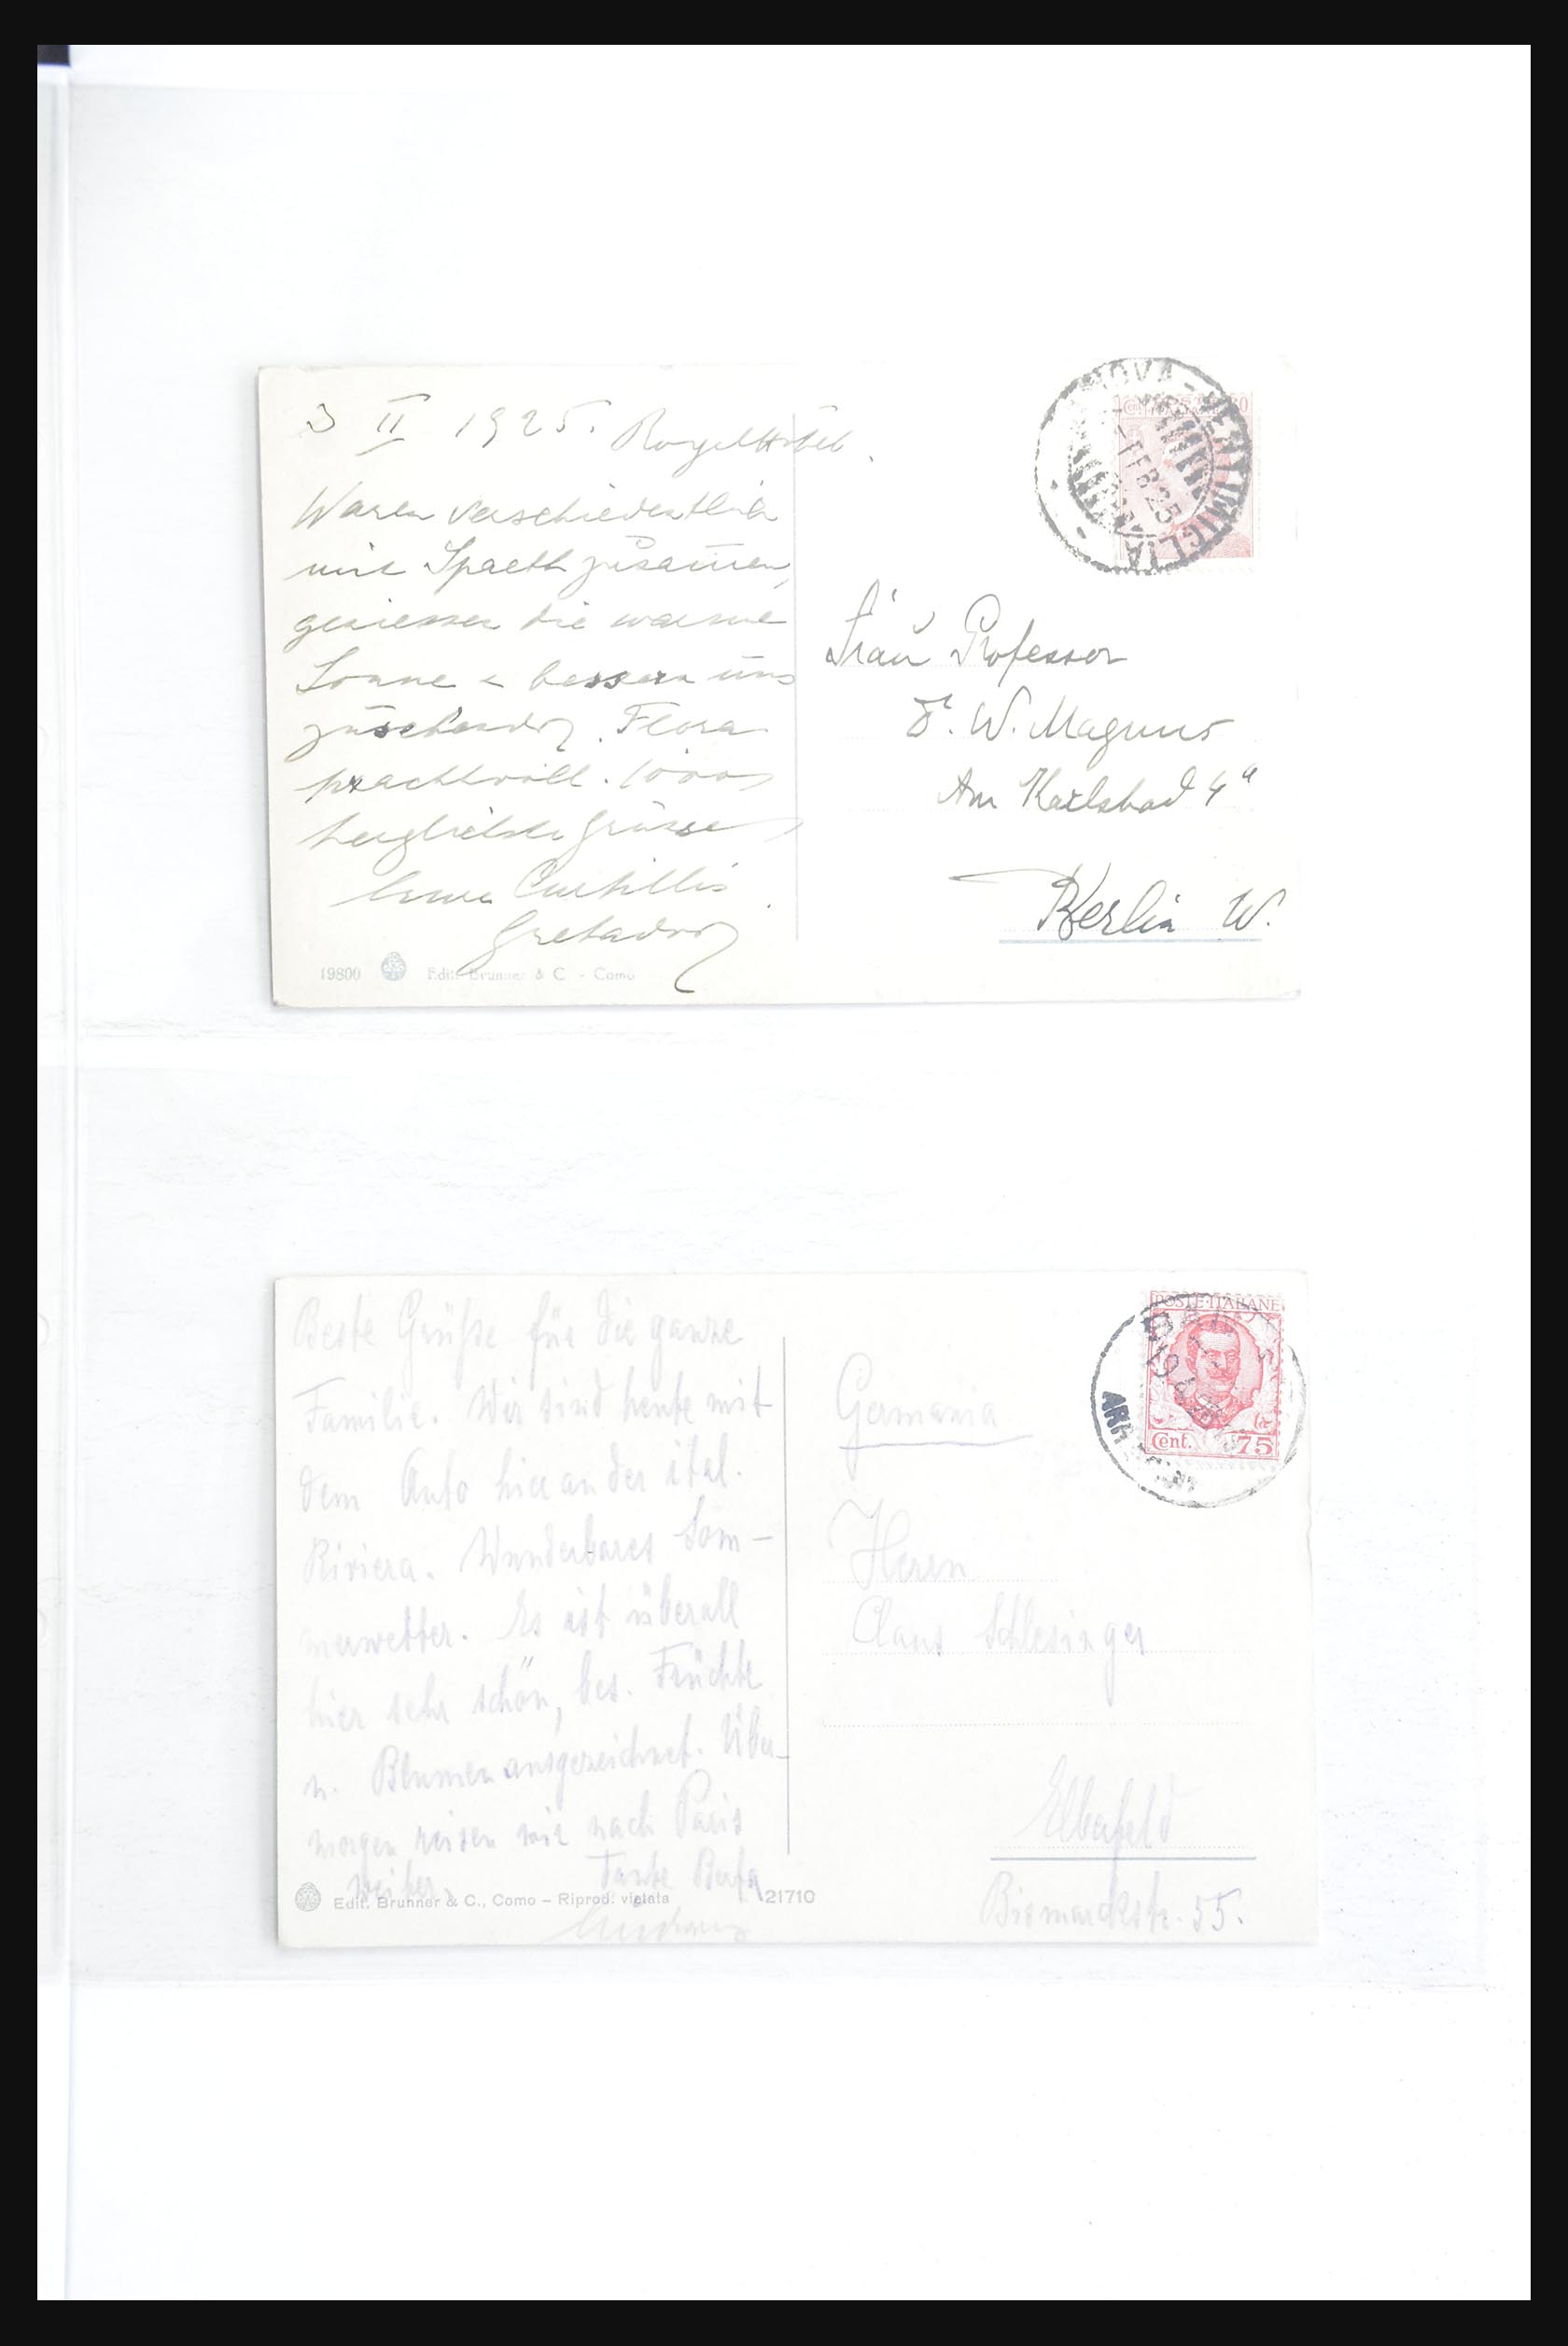 3 II 1925. Royal Hotel.
Waren verschiedentlich
mit Spaeth zusammen,
geniessen die warme
Sonne & bessern uns
zusehends. Flora
prachtvoll. 1000
herzlichste Grüsse
Gretador
19800 Edit. Brunner & C. - Como
VENTIMIGLIA
FEB 25
60
Frau Professor
Dr. W. Magnus
Am Karlsbad 4a
Berlin W.
Beste Grüße für die ganze
Familie. Wir sind heute mit
dem Auto hier an der ital.
Riviera. Wunderbares Som-
merwetter. Es ist überall
hier sehr schön, bes. Früchte
u. Blumen ausgezeichnet. Über-
morgen reisen wir nach Paris
weiter. Tante Berta
Edit. Brunner & C., Como – Riprod. vietata 21710
POSTE ITALIANE
Cent. 75
Germania
Herrn
Claus Schlesinger
Elberfeld
Bismarckstr. 55.